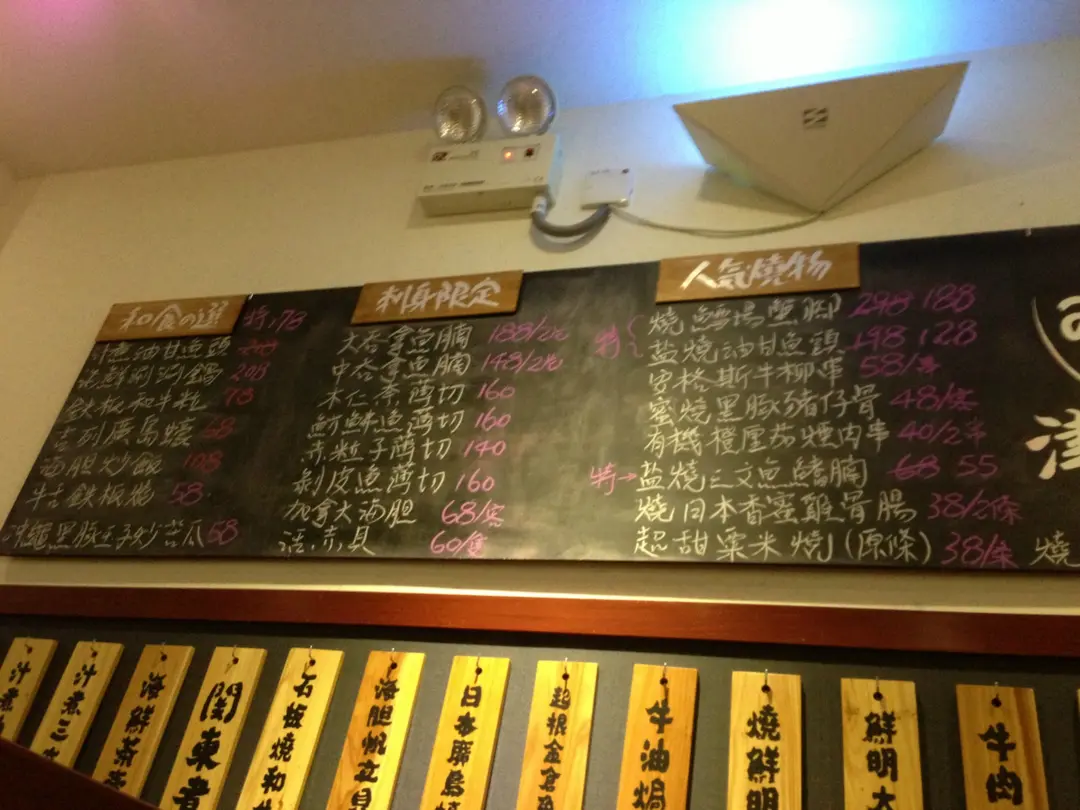 和食の選
特,78
汁煮油甘魚頭
海鮮涮涮鍋 208
鉄板和牛粒 78
吉列廣島蠔 68
海胆炒飯 108
牛舌鉄板燒 58
沖繩黑豚玉子炒苦瓜 58
刺身限定
大吞拿魚腩 188/2位
中吞拿魚腩 148/2位
木仁奈薄切 160
魴鮄魚薄切 160
赤粒子薄切 140
剝皮魚薄切 160
加拿大海胆 68/客
活赤貝 60/隻
人気燒物
特 燒鱈場蟹脚 298 188
盐燒油甘魚頭 198 128
安格斯牛柳串 58/串
蜜燒黑豚豬仔骨 48/客
有機櫻厘茄煙肉串 40/2串
特→盐燒三文魚鰭腩 68 55
燒日本香蜜雞骨腸 38/2條
超甜粟米燒(原條) 38/条
燒
津
汁煮
汁煮三
海鮮茶
関東煮
石板燒和牛
海胆帆立貝
日本廣島
超根金倉
牛油焗
燒鮮明
鮮明大
牛肉